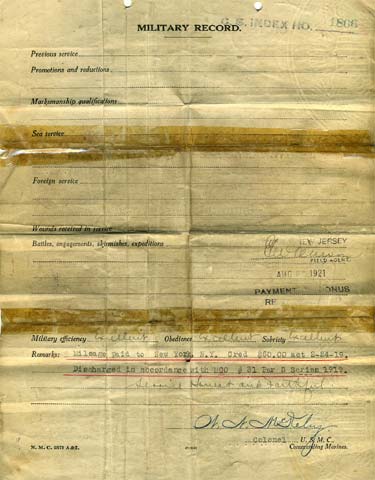 MILITARY RECORD.
C. S. INDEX NO. 1866
Previous service
Promotions and reductions
Marksmanship qualifications
Sea service
Foreign service
Wounds received in service
Battles, engagements, skirmishes, expeditions
NEW JERSEY
FIELD AGENT
AUG 1921
PAYMENT BONUS
RE
Military efficiency Excellent Obedience Excellent Sobriety Excellent
Remarks: Mileage paid to New York, N.Y. Cred $60.00 act 2-24-19.
Discharged in accordance with MCO # 31 Par 5 Series 1919.
Service Honest and Faithful.
Colonel U. S. M. C.
Commanding Marines.
N. M. C.